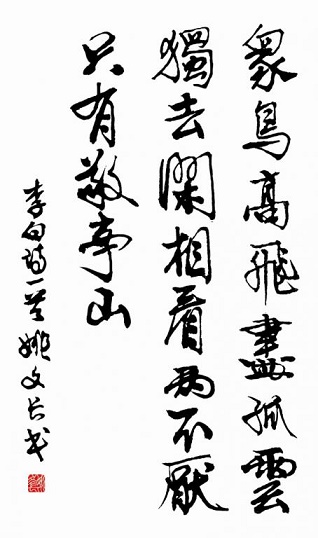 衆鳥高飛盡孤雲
獨去閑相看兩不厭
只有敬亭山
李白詩一首姚文长书